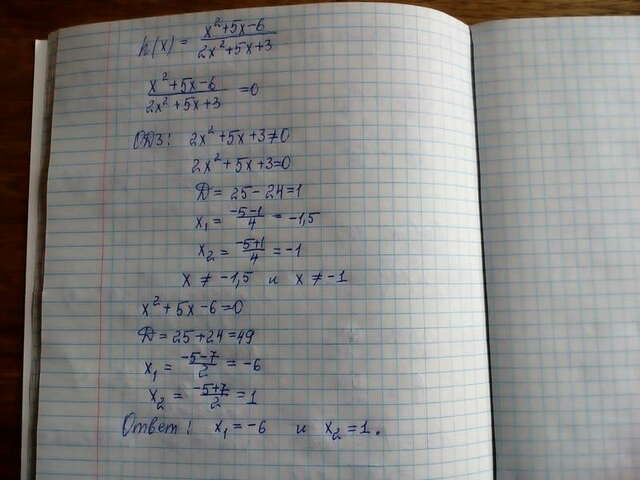 h(x) = (x²+5x-6)/(2x²+5x+3)
(x²+5x-6)/(2x²+5x+3) = 0
ОДЗ: 2x²+5x+3≠0
2x²+5x+3=0
D = 25-24=1
x₁ = (-5-1)/4 = -1,5
x₂ = (-5+1)/4 = -1
x ≠ -1,5 и x ≠ -1
x²+5x-6=0
D = 25+24=49
x₁ = (-5-7)/2 = -6
x₂ = (-5+7)/2 = 1
Ответ: x₁ = -6 и x₂ = 1.